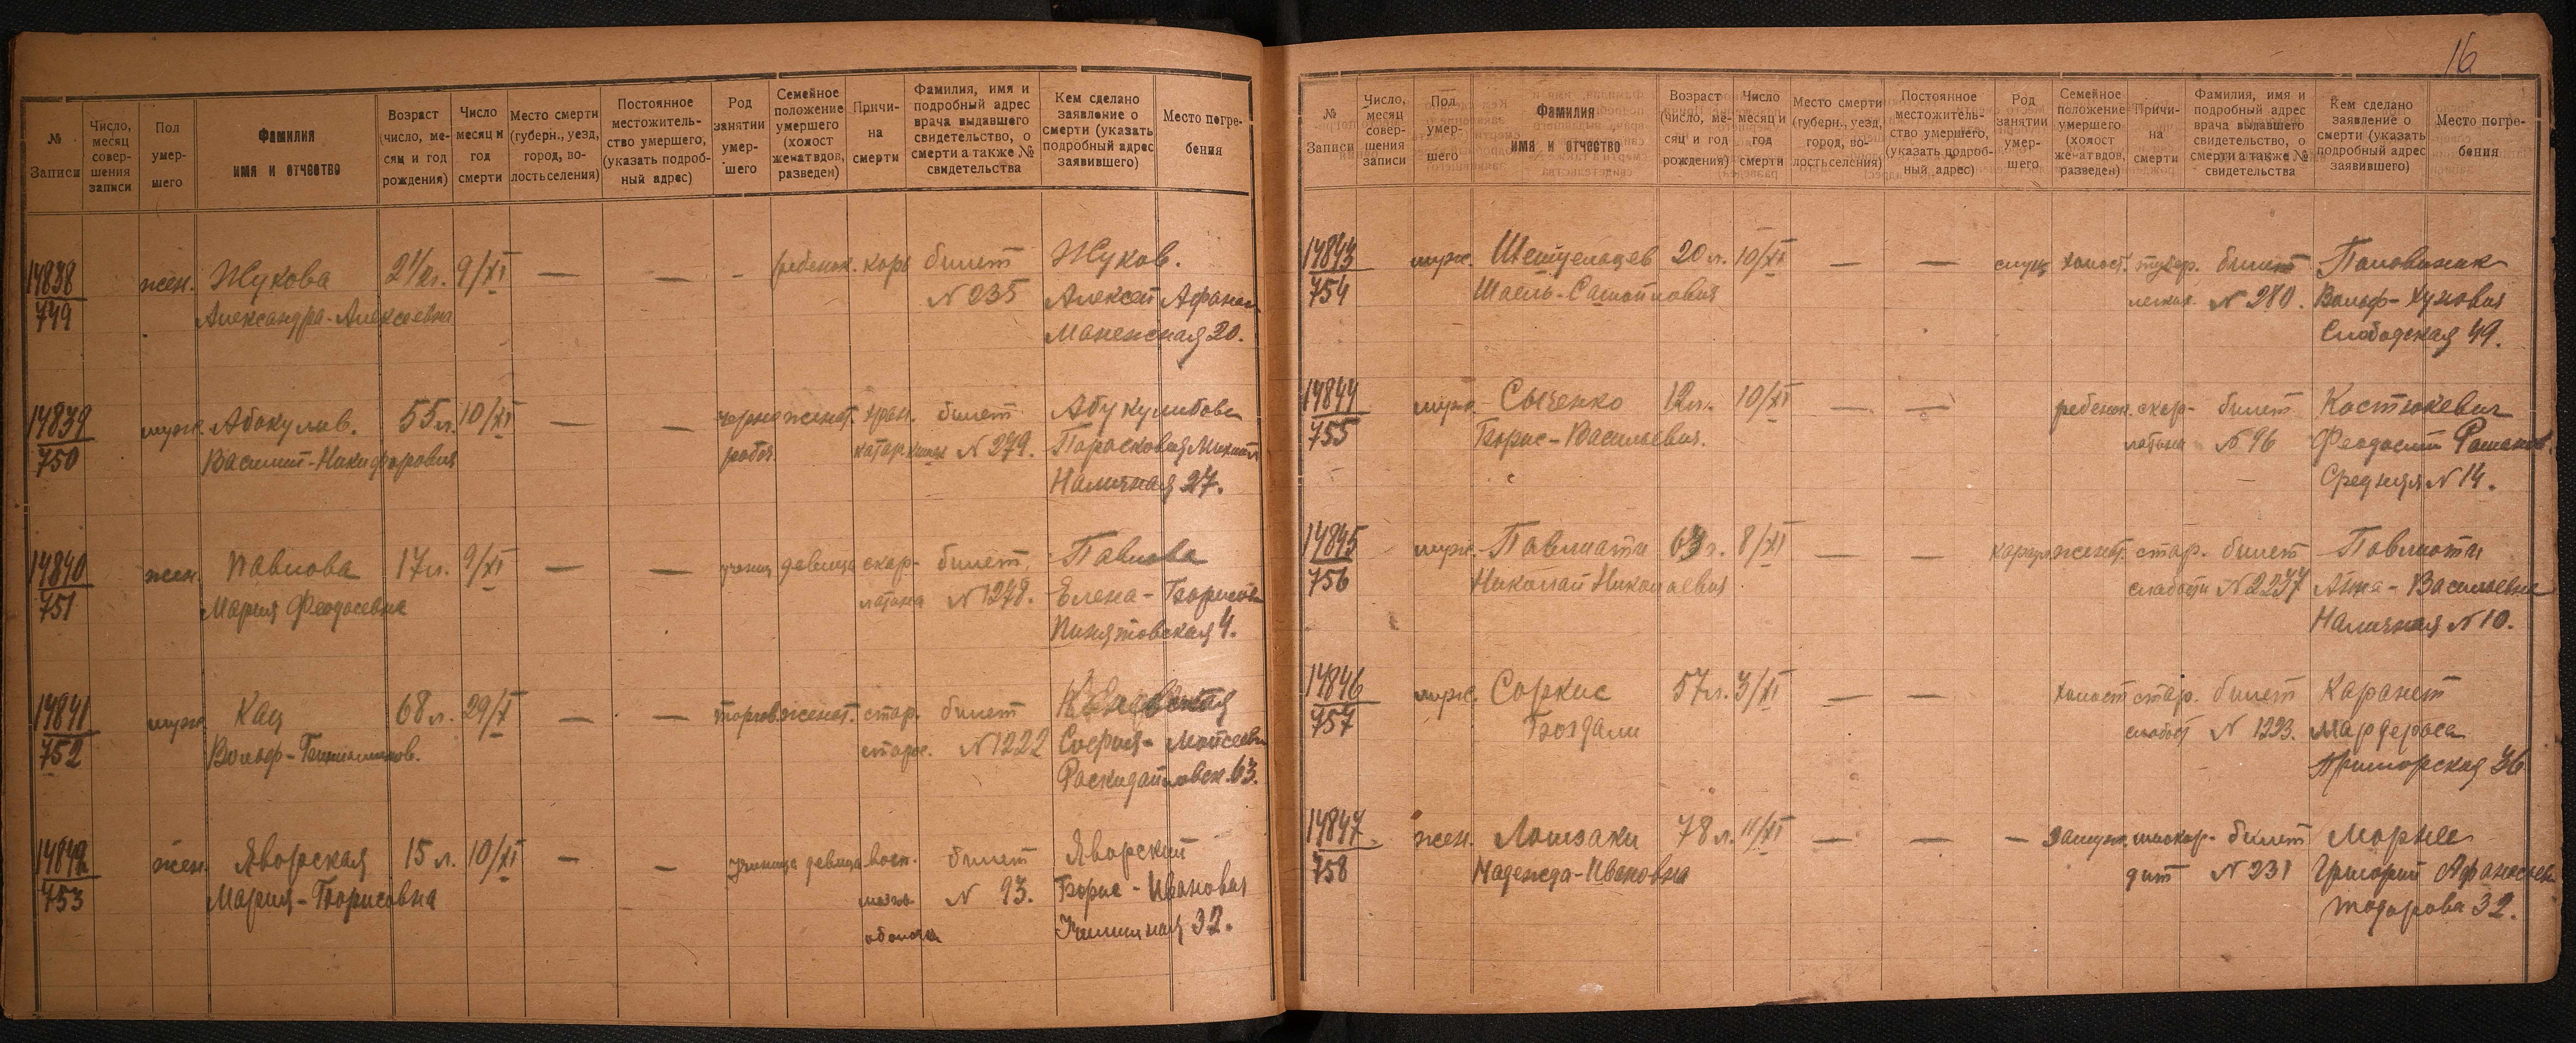 № Записи
Число, месяц совершения записи
Пол умершего
Фамилия имя и отчество
Возраст (число, месяц и год рождения)
Число месяц и год смерти
Место смерти (губерн., уезд, город, волость селения)
Постоянное местожительство умершего, (указать подробный адрес)
Род занятии умершего
Семейное положение умершего (холост женат вдов, разведен)
Причина смерти
Фамилия, имя и подробный адрес врача выдавшего свидетельство, о смерти а также № свидетельства
Кем сделано заявление о смерти (указать подробный адрес заявившего)
Место погребения
14838 жен. Жукова 2½ г. 9/XI — — - ребенок. корь билет Жуков.
749 Александра-Алексеевна № 235 Алексей Афанас
20.
14839 муж. Абакумов. 55 л. 10/XI — — черно женат. хрон. билет
750 Василий-Никифорович рабоч. катар кишек № 279. Парасковия Михайл
Наличная 27.
14840 жен. Павлова 17 л. 9/XI — — учениц девица скар- билет Павлова
751 Мария Феодосевна латина № 1278. Елена-Борисов
4.
14841 муж. Кац 68 л. 29/X — — торгов. женат. стар. билет
752 Вольф- № 1222 София-Мойсеевн
Раскидайловск. 63.
14842 жен. Яворская 15 л. 10/XI — — ученица девица восп. билет Яворский
753 Мария-Борисовна мозгов. № 93. Борис-Иванович
оболоч 32.
16
№ Записи
Число, месяц совершения записи
Пол умершего
Фамилия имя и отчество
Возраст (число, месяц и год рождения)
Число месяц и год смерти
Место смерти (губерн., уезд, город, волость селения)
Постоянное местожительство умершего, (указать подробный адрес)
Род занятии умершего
Семейное положение умершего (холост женат вдов, разведен)
Причина смерти
Фамилия, имя и подробный адрес врача выдавшего свидетельство, о смерти а также № свидетельства
Кем сделано заявление о смерти (указать подробный адрес заявившего)
Место погребения
14843 муж. 20 л. 10/XI — — служ холост. тубер. билет
754 легких № 280. Вольф-
Слободская 49.
14844 муж. Сыченко 12 л. 10/XI — — ребенок. скар- билет Костюкевич
755 Борис-Васильевич. латина № 96 Феодосий
Средняя № 14.
14845 муж. Павлиоти 63 г. 8/XI — — женат. стар. билет Павлиоти
756 Николай Николаевич слабости № 2237 Анна-Васильевна
Наличная № 10.
14846 муж. Соркис 57 л. 3/XI — — холост стар. билет Карапет
757 Боздали слабост № 1223.
Приморская 36
14847 жен. 78 л. 11/XI — — — замуж. миокар- билет
758 Надежда-Ивановна дит № 231 Григорий Афанасьев
32.